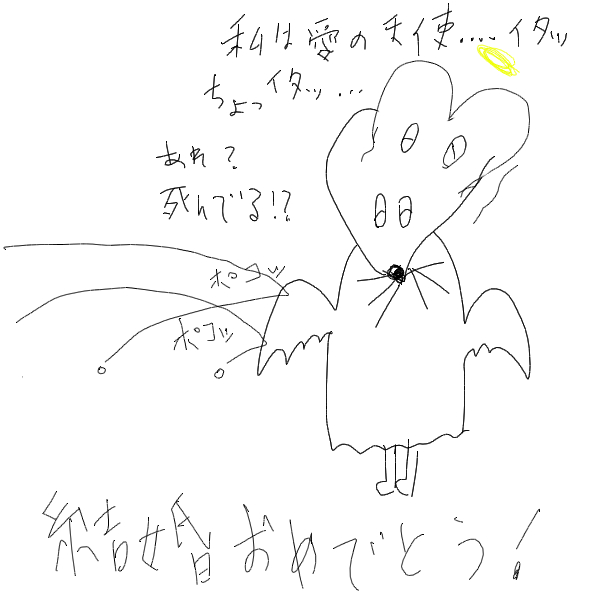 私は愛の天使....イタッ
ちょっイタッ...
あれ?
死んでる!?
ポコッ
ポコッ
結婚おめでとう!